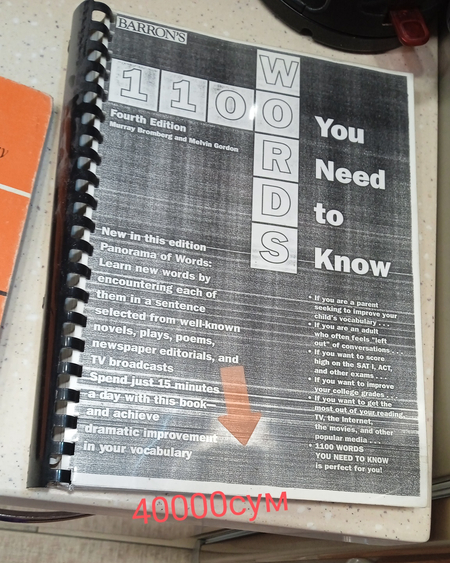 BARRON'S
1100
WORDS
Fourth Edition
Murray Bromberg and Melvin Gordon
You
Need
to
Know
New in this edition
Panorama of Words:
Learn new words by
encountering each of
them in a sentence
selected from well-known
novels, plays, poems,
newspaper editorials, and
TV broadcasts
Spend just 15 minutes
a day with this book
and achieve
dramatic improvement
in your vocabulary
• If you are a parent
seeking to improve your
child's vocabulary . . .
• If you are an adult
who often feels "left
out" of conversations . . .
• If you want to score
high on the SAT I, ACT,
and other exams . . .
• If you want to improve
your college grades . . .
• If you want to get the
most out of your reading,
TV, the Internet,
the movies, and other
popular media . . .
• 1100 WORDS
YOU NEED TO KNOW
is perfect for you!
40000сум